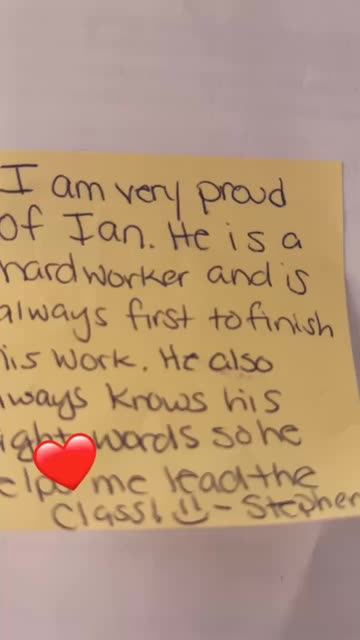 I am very proud
of Ian. He is a
hard worker and is
always first to finish
his work. He also
always knows his
sight words so he
helps me lead the
class! - Stephen